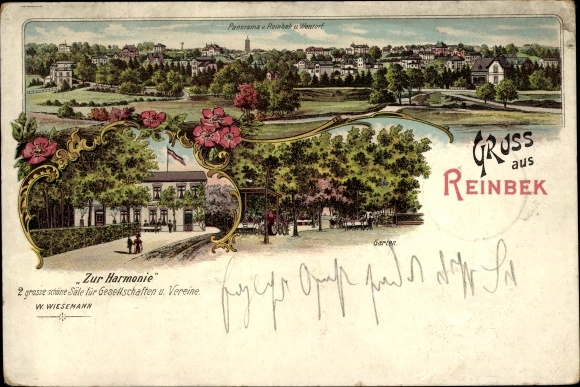 Panorama v. Reinbek u. Wentorf.
GRUSS
aus
REINBEK
Garten.
„Zur Harmonie"
2 grosse schöne Säle für Gesellschaften u. Vereine.
W. WIESEMANN